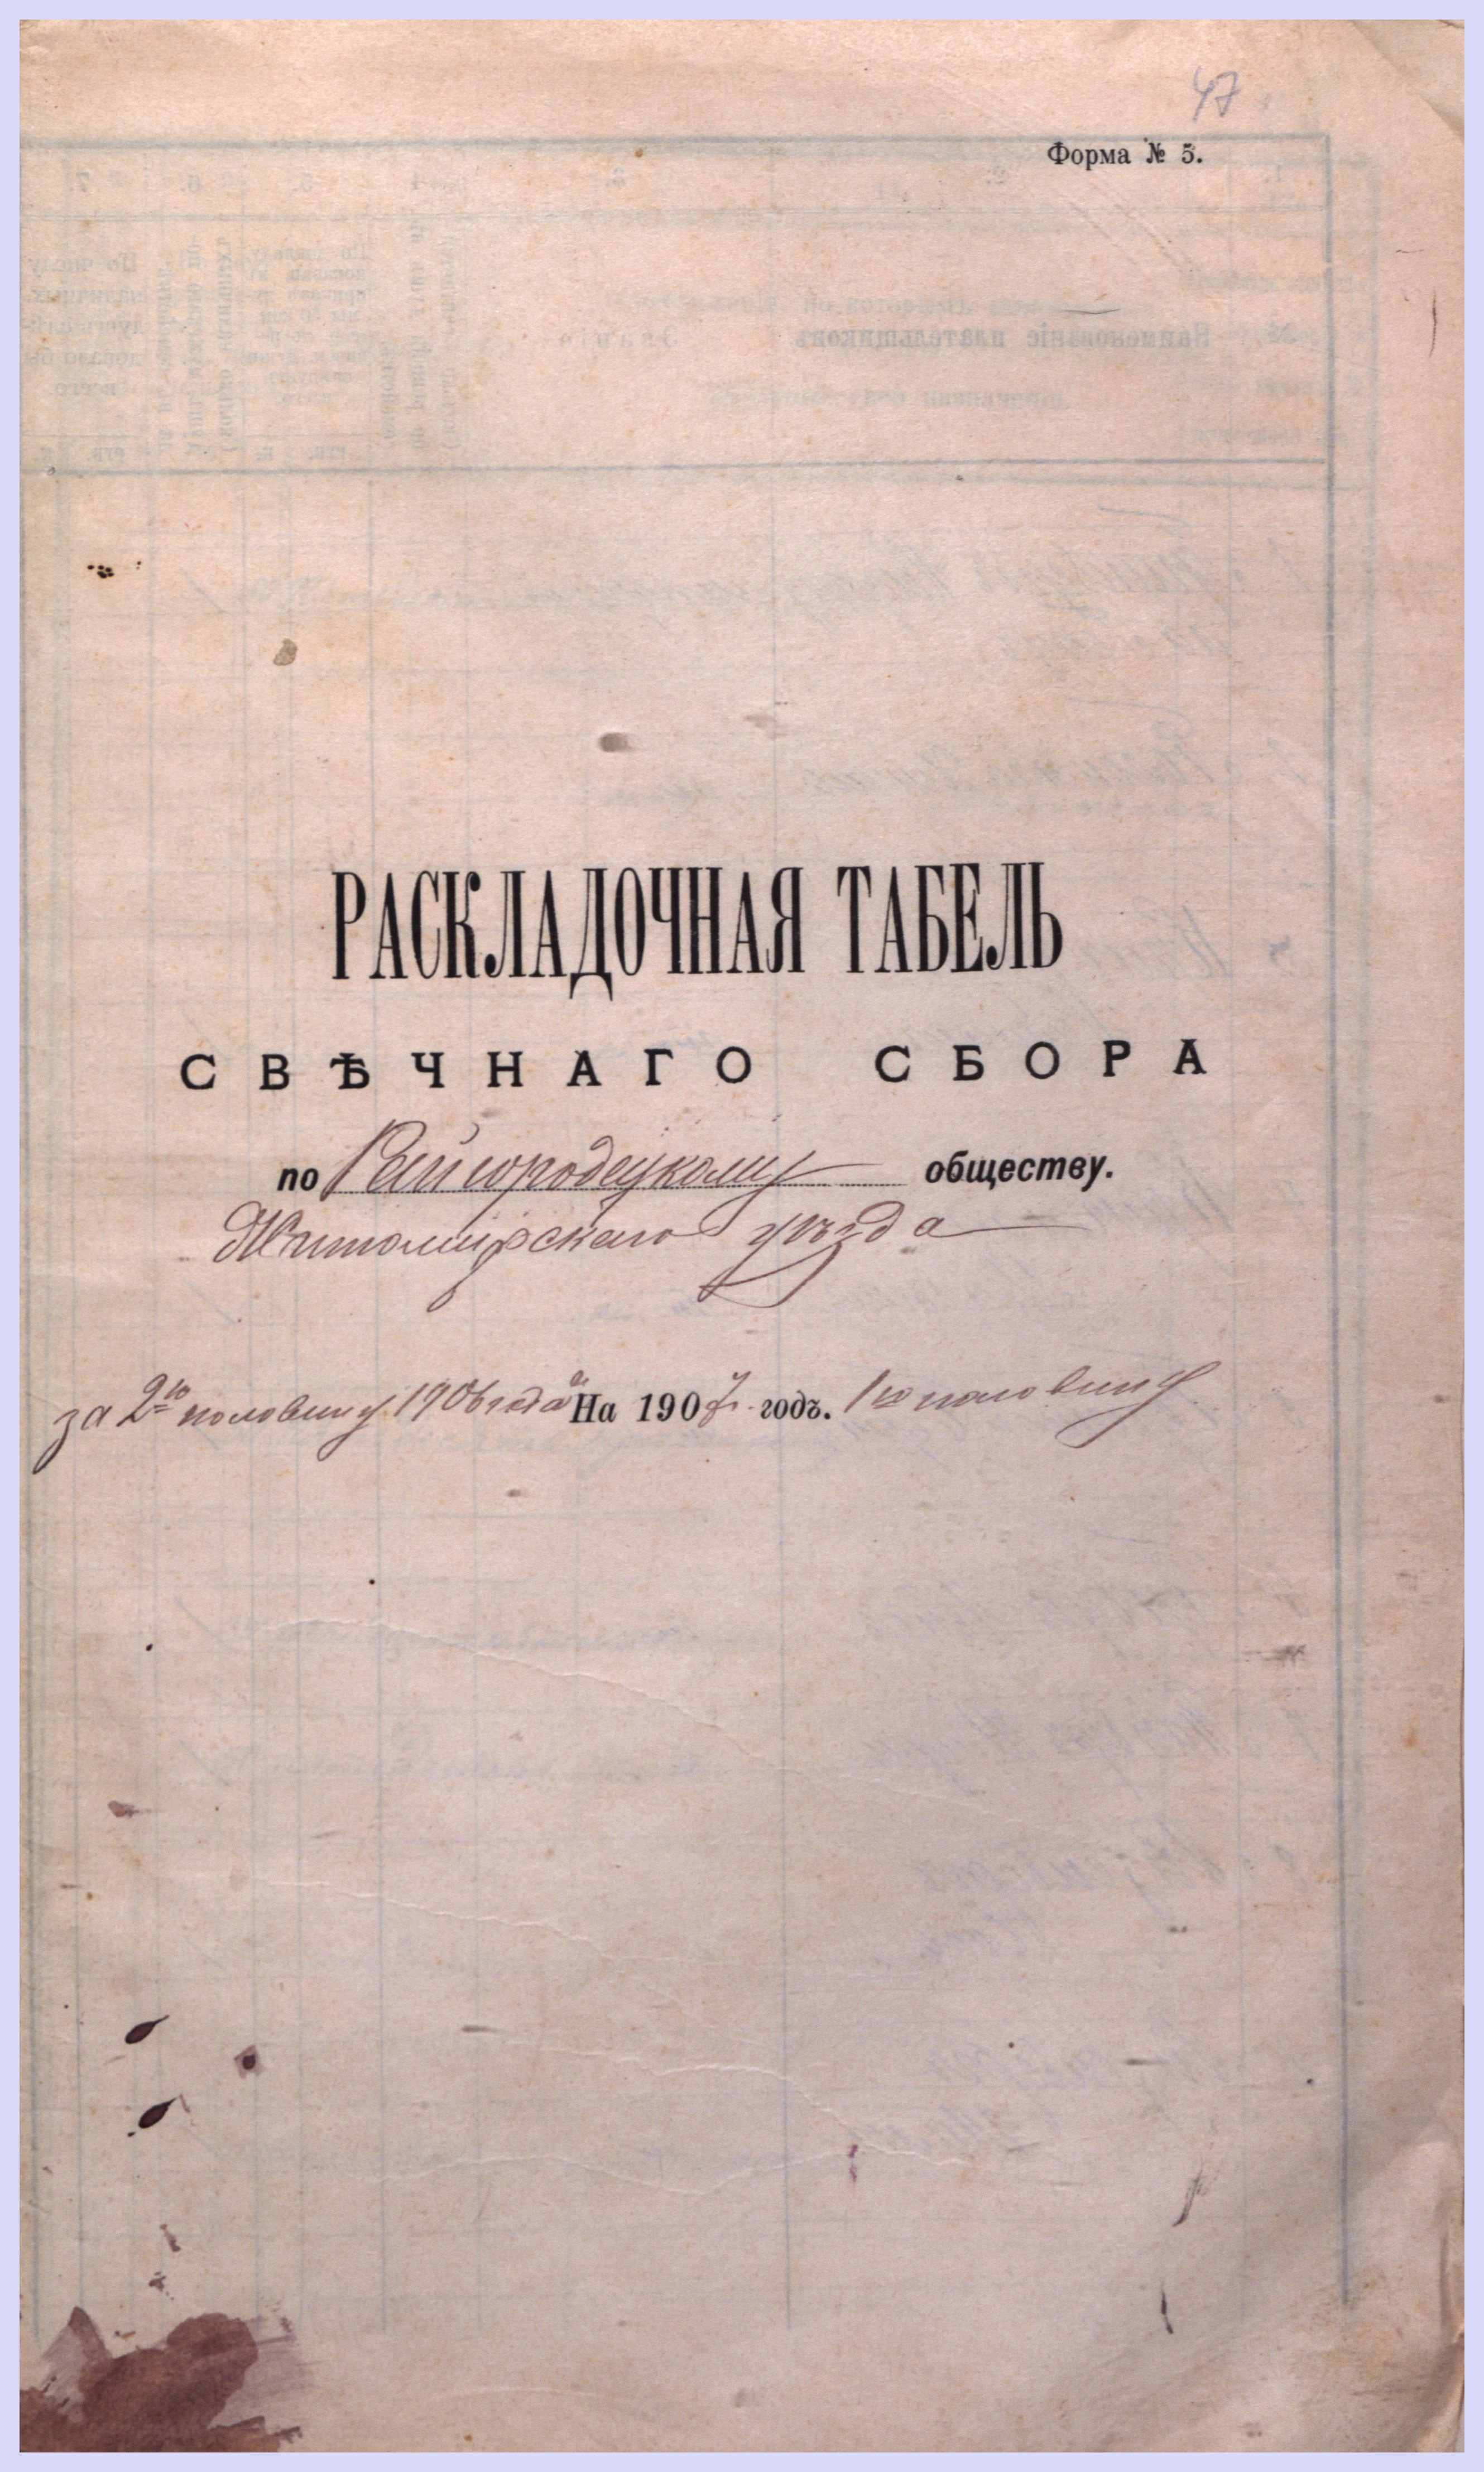 47
Форма № 5.
РАСКЛАДОЧНАЯ ТАБЕЛЬ
СВѢЧНАГО СБОРА
по Райгородецкому обществу.
Житомирскаго уѣзда
за 2ю половину 1906 года и На 1907 годъ. 1ю половину